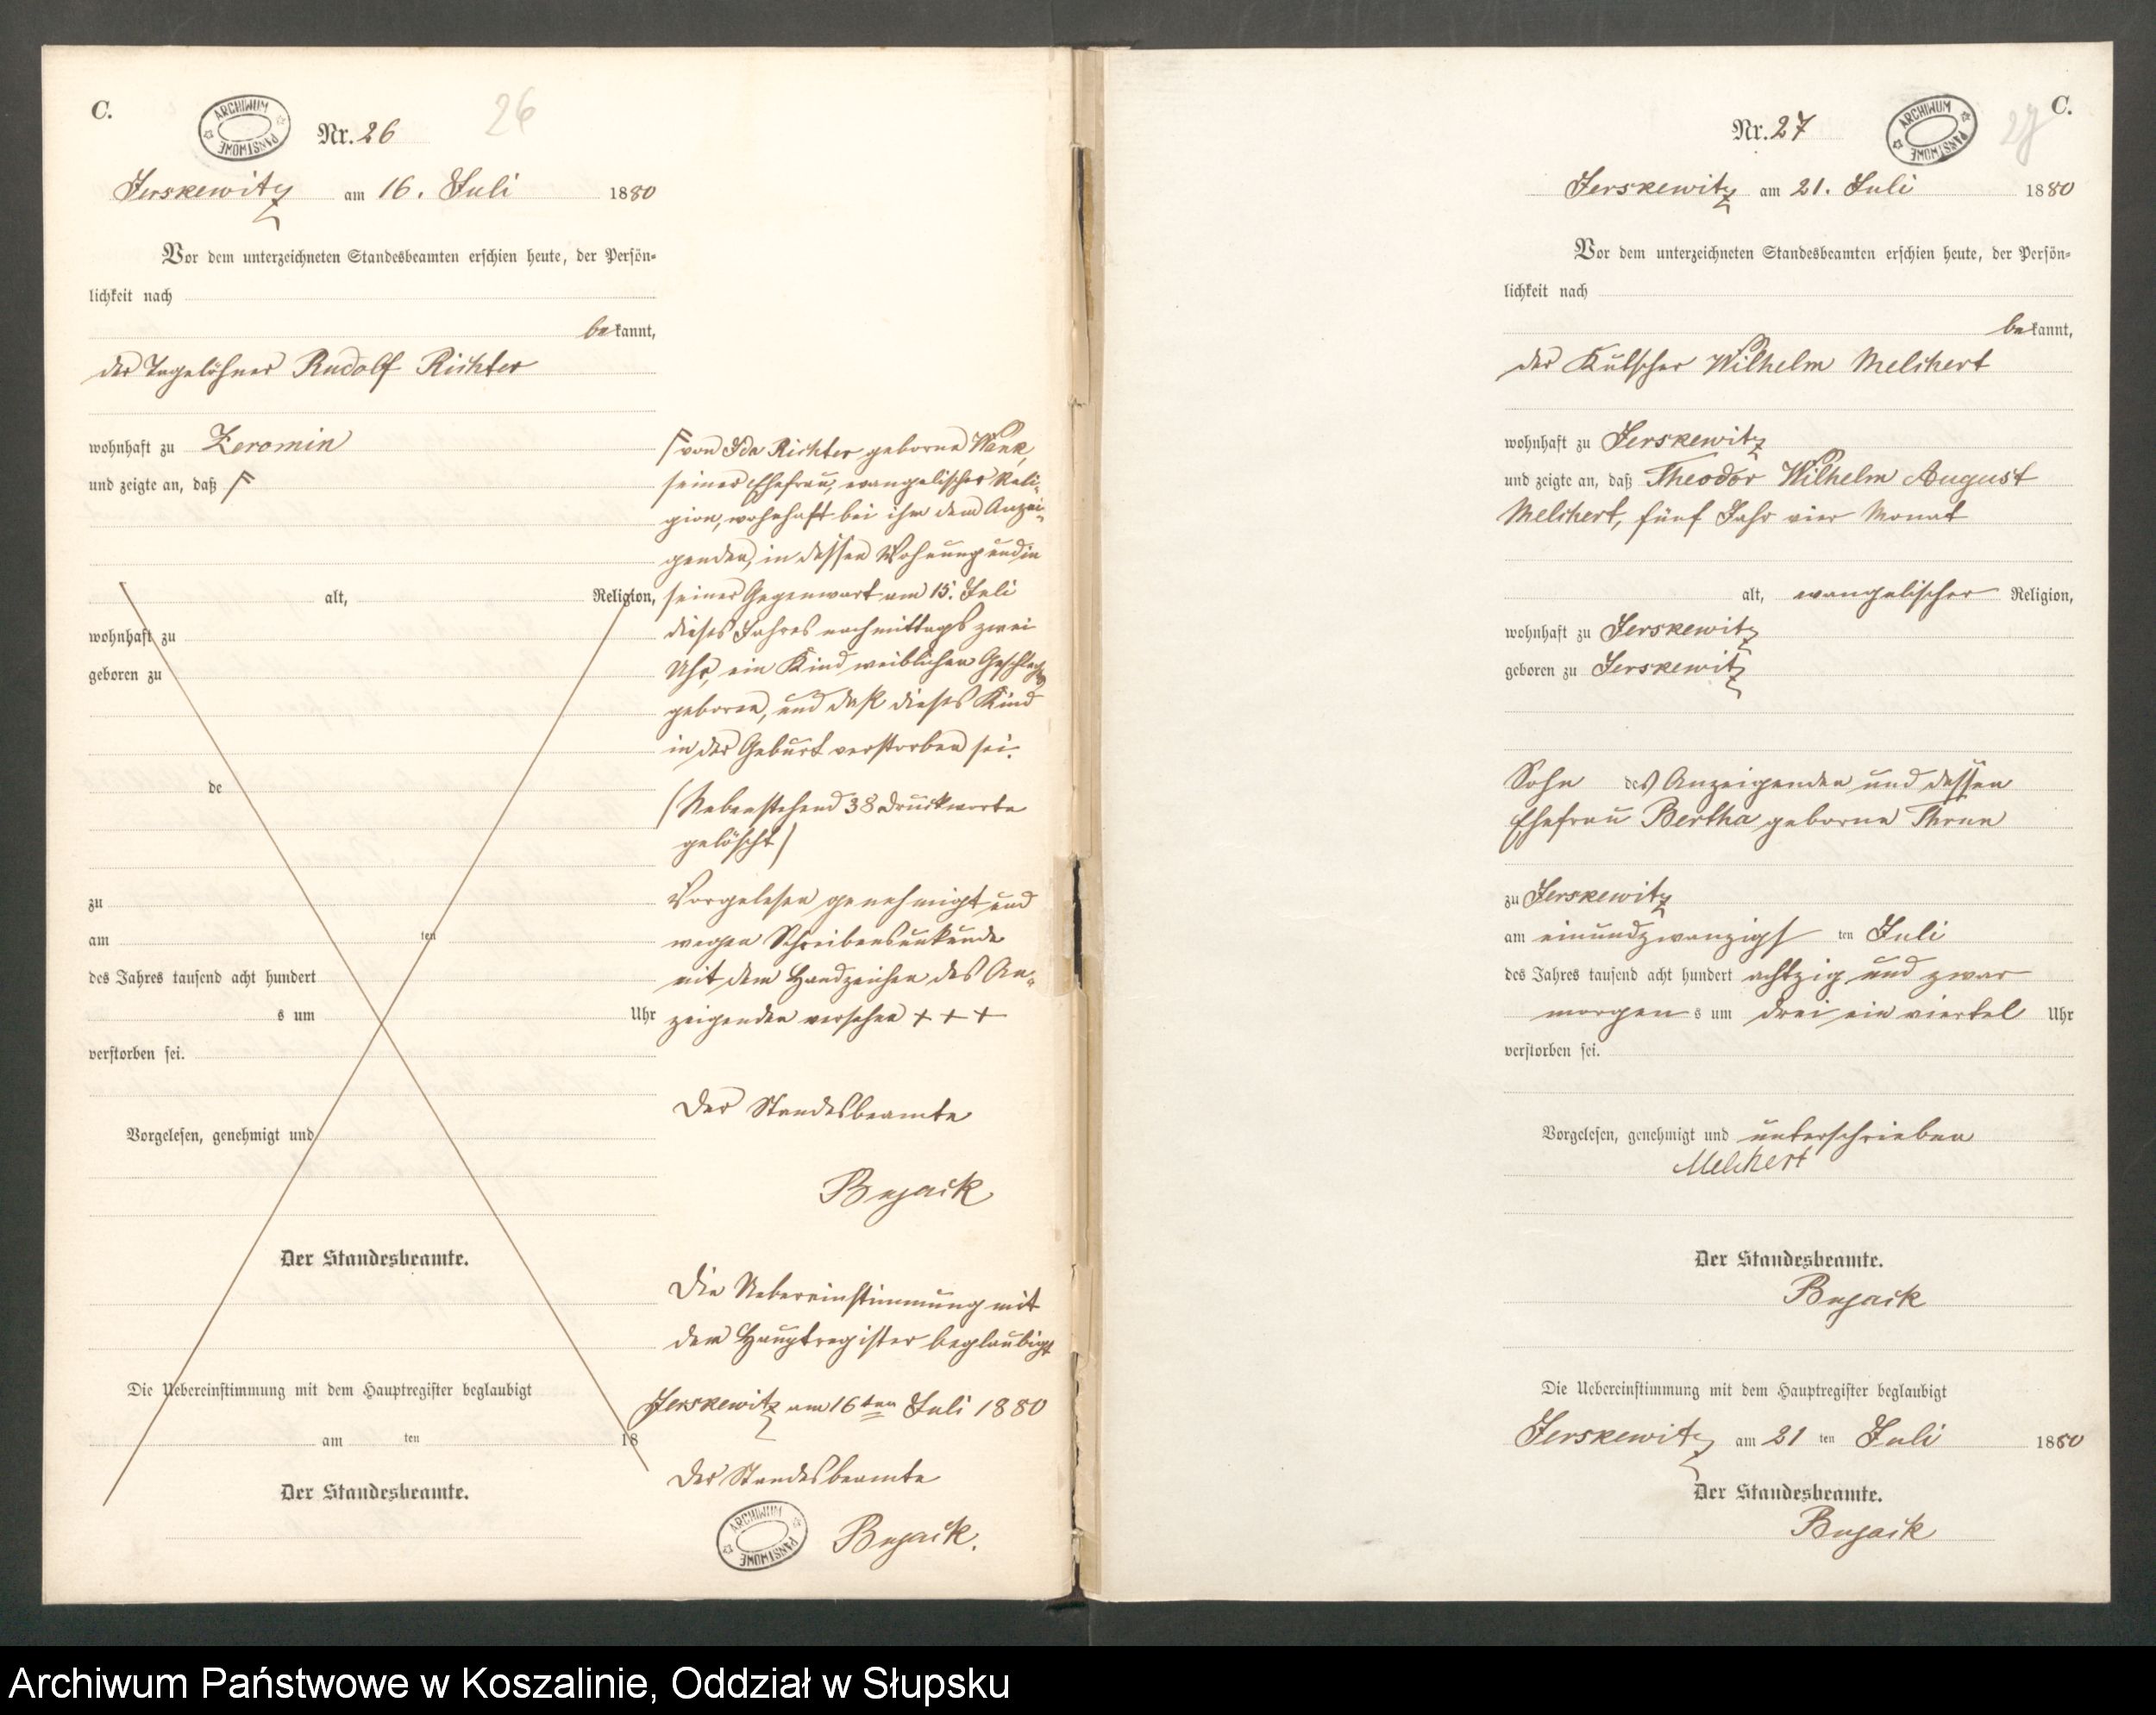 C.
ARCHIWUM PAŃSTWOWE
Nr. 26
26
Jerskewitz am 16. Juli 1880
Vor dem unterzeichneten Standesbeamten erschien heute, der Persön-
lichkeit nach
bekannt,
der Tagelöhner Rudolf Richter
wohnhaft zu Zeromin
und zeigte an, daß
alt, Religion,
wohnhaft zu
geboren zu
de
zu
am ten
des Jahres tausend acht hundert
s um Uhr
verstorben sei.
Vorgelesen, genehmigt und
Der Standesbeamte.
Die Uebereinstimmung mit dem Hauptregister beglaubigt
am ten 18
Der Standesbeamte.
von Ida Richter geborne Wenk,
seiner Ehefrau, evangelischer Reli-
gion, wohnhaft bei ihm dem Anzei-
genden, in dessen Wohnung und in
seiner Gegenwart am 15. Juli
dieses Jahres nachmittags zwei
Uhr, ein Kind weiblichen Geschlechts
geboren, und daß dieses Kind
in der Geburt verstorben sei.
(Nebenstehend 38 Druckworte
gelöscht)
Vorgelesen genehmigt und
wegen Schreibensunkunde
mit dem Handzeichen des An-
zeigenden versehen + + +
Der Standesbeamte
Bujack
Die Uebereinstimmung mit
dem Hauptregister beglaubigt
Jerskewitz am 16ten Juli 1880
Der Standesbeamte
ARCHIWUM PAŃSTWOWE
Bujack.
C.
Nr. 27
ARCHIWUM PAŃSTWOWE
27
Jerskewitz am 21. Juli 1880
Vor dem unterzeichneten Standesbeamten erschien heute, der Persön-
lichkeit nach
bekannt,
der Kutscher Wilhelm Melchert
wohnhaft zu Jerskewitz
und zeigte an, daß Theodor Wilhelm August
Melchert, fünf Jahr vier Monat
alt, evangelischer Religion,
wohnhaft zu Jerskewitz
geboren zu Jerskewitz
Sohn des Anzeigenden und dessen
Ehefrau Bertha geborne Thrun
zu Jerskewitz
am einundzwanzigsten Juli
des Jahres tausend acht hundert achtzig und zwar
morgens um drei ein viertel Uhr
verstorben sei.
Vorgelesen, genehmigt und unterschrieben
Melchert
Der Standesbeamte.
Bujack
Die Uebereinstimmung mit dem Hauptregister beglaubigt
Jerskewitz am 21 ten Juli 1880
Der Standesbeamte.
Bujack
Archiwum Państwowe w Koszalinie, Oddział w Słupsku